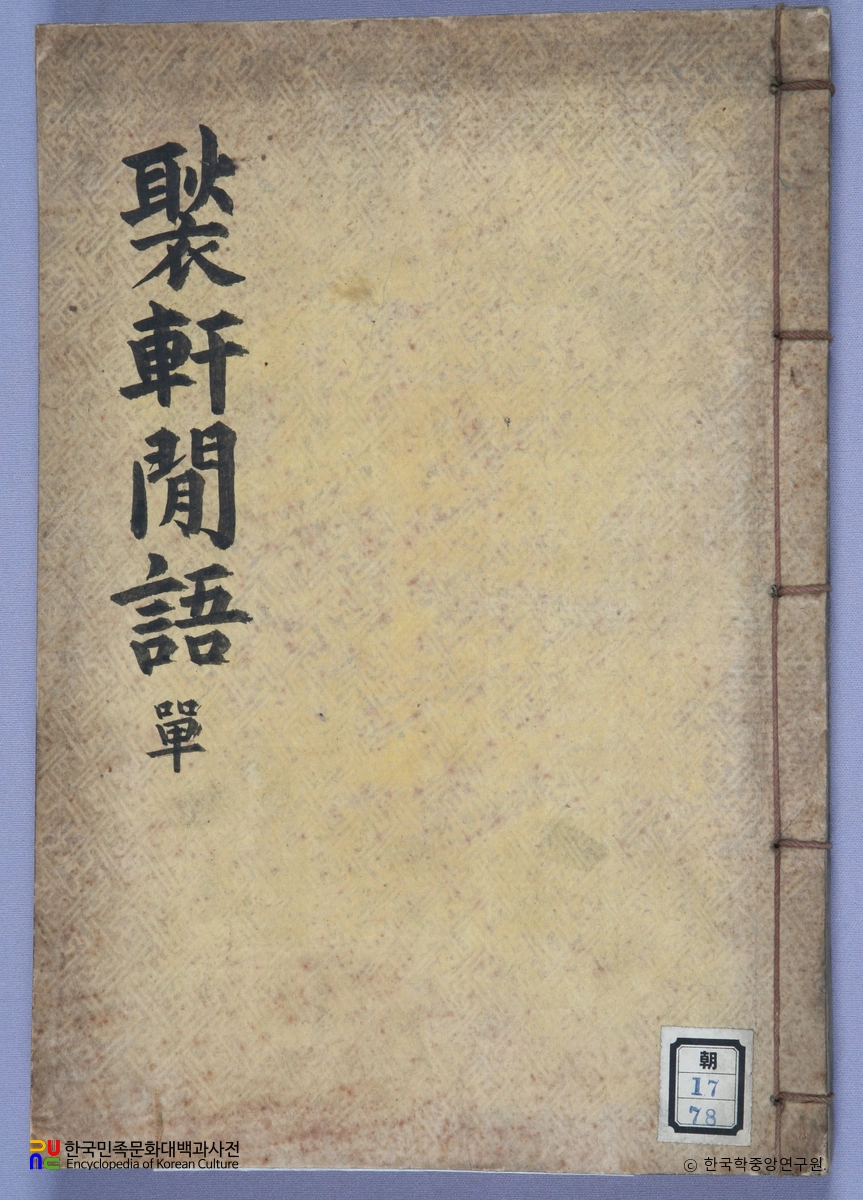 褧軒閒語 單
朝
17
78
한국민족문화대백과사전
Encyclopedia of Korean Culture
ⓒ 한국학중앙연구원